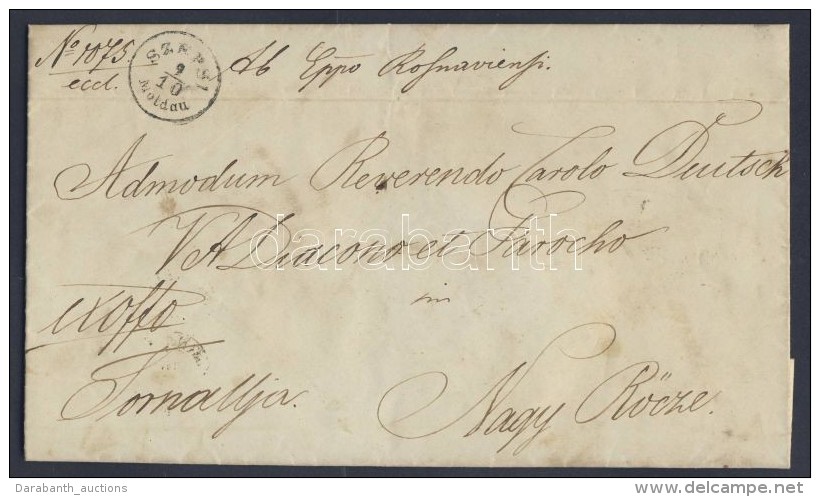 No 1075.
eccl.
SZEPSI
9/10
Moldau
Ab Eppo Rosnaviensi.
Admodum Reverendo Carolo Deutsch
VADiacono et Parocho
in
exoffo.
Tornallja.
Nagy Röcze.
darabanth
Darabanth_auctions
www.delcampe.net